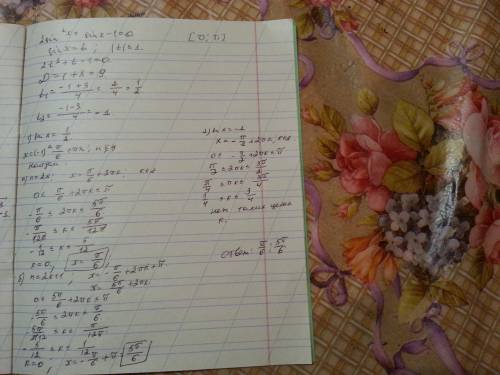 2sin²x + sin x - 1 = 0 [0; π]
sin x = t, |t| ≤ 1
2t² + t - 1 = 0
D = 1 + 8 = 9
t₁ = (-1+3)/4 = 2/4 = 1/2
t₂ = (-1-3)/4 = -1
1) sin x = 1/2
x = (-1)ⁿ π/6 + πn; n∈Z
а) n=2k, x = π/6 + 2πk, k∈Z
0 ≤ π/6 + 2πk ≤ π
-π/6 ≤ 2πk ≤ 5π/6
-π/12π ≤ k ≤ 5π/12π
-1/12 ≤ k ≤ 5/12
k=0, x = π/6
б) n=2k+1, x = -π/6 + 2πk + π
x = 5π/6 + 2πk
0 ≤ 5π/6 + 2πk ≤ π
-5π/6 ≤ 2πk ≤ π/6
-5/12 ≤ k ≤ 1/12
k=0, x = -π/6 + π = 5π/6
2) sin x = -1
x = -π/2 + 2πk, k∈Z
0 ≤ -π/2 + 2πk ≤ π
π/2 ≤ 2πk ≤ 3π/2
π/4 ≤ πk ≤ 3π/4
1/4 ≤ k ≤ 3/4
нет таких целых
k.
ответ: π/6; 5π/6